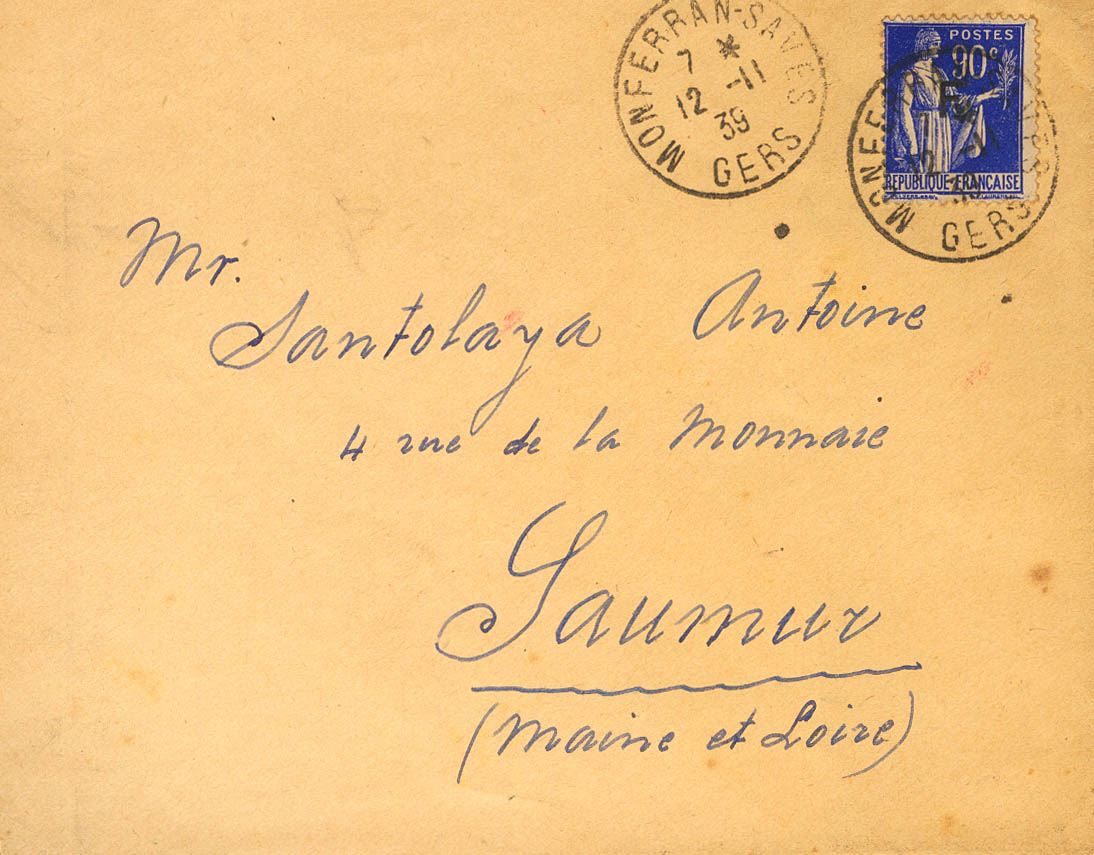 MONFERRAN-SAVES
7 *
12 -11
39
GERS
POSTES
90c
F
REPUBLIQUE FRANÇAISE
MONFERRAN-SAVES
7 *
12 -11
39
GERS
Mr.
Santolaya Antoine
4 rue de la Monnaie
Saumur
(Maine et Loire)